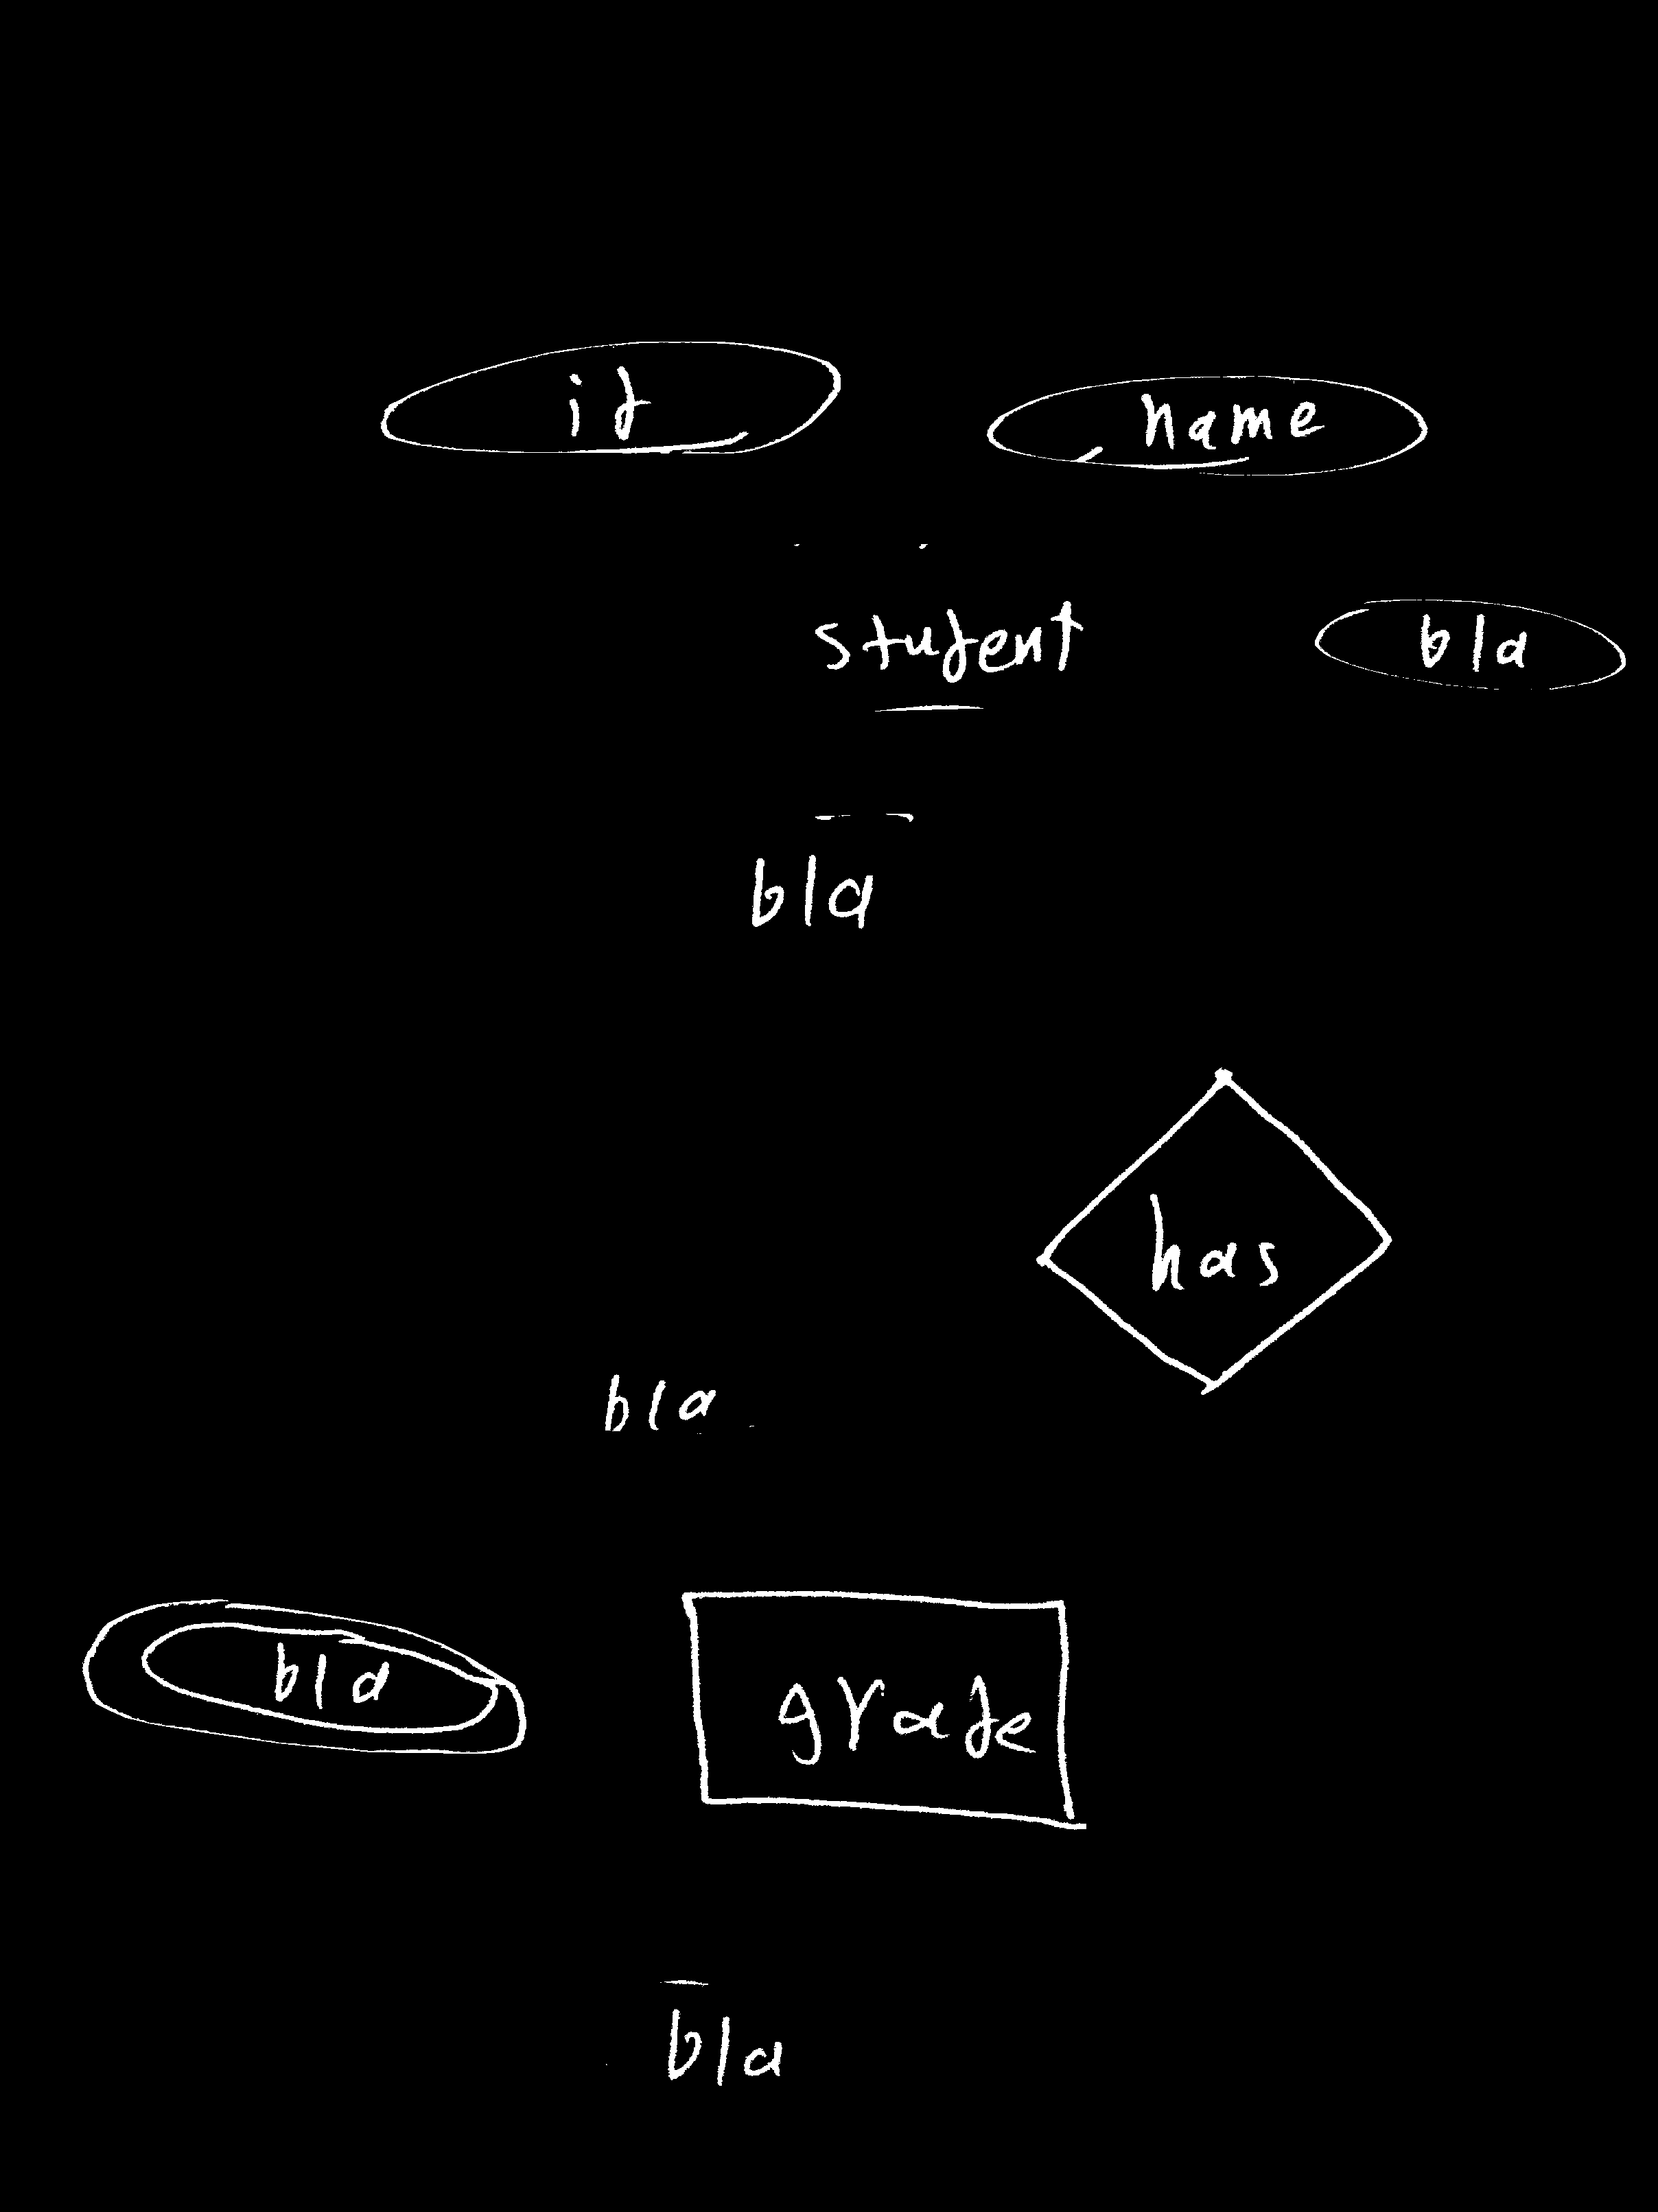 id
name
student
bla
bla
has
bla
bla
grade
bla